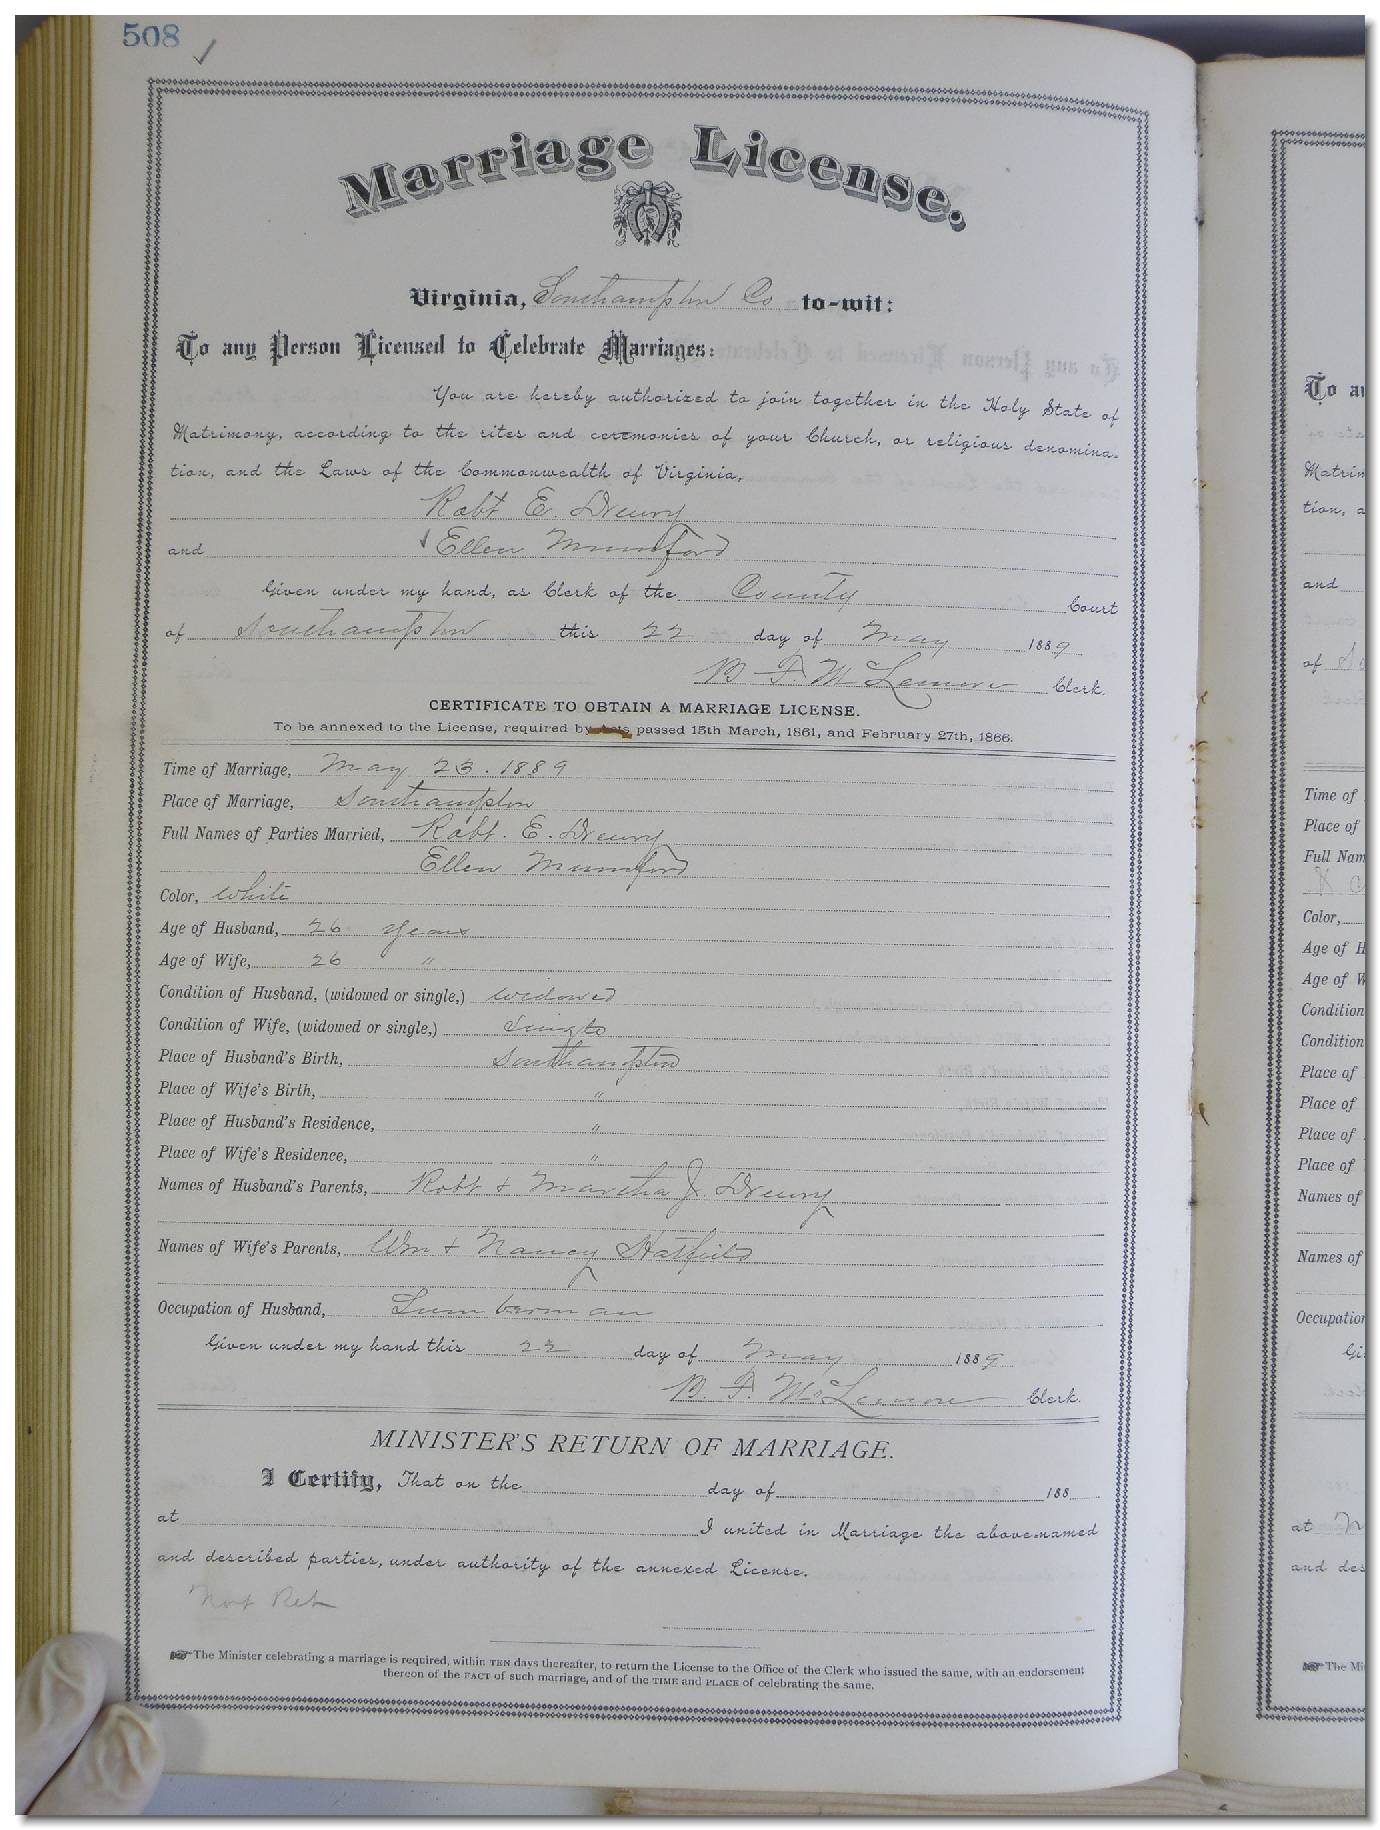 508
Marriage License.
Virginia, Southampton Co to-wit:
To any Person Licensed to Celebrate Marriages:
You are hereby authorized to join together in the Holy State of
Matrimony, according to the rites and ceremonies of your Church, or religious denomina-
tion, and the Laws of the Commonwealth of Virginia,
Robt E. Drewry
and Ellen Mumford
Given under my hand, as Clerk of the County Court
of Southampton this 22 day of May 1889
B. F. McLemore Clerk.
CERTIFICATE TO OBTAIN A MARRIAGE LICENSE.
To be annexed to the License, required by Acts passed 15th March, 1861, and February 27th, 1866.
Time of Marriage, May 23. 1889
Place of Marriage, Southampton
Full Names of Parties Married, Robt. E. Drewry
Ellen Mumford
Color, White
Age of Husband, 26 years
Age of Wife, 26 "
Condition of Husband, (widowed or single,) widowed
Condition of Wife, (widowed or single,) Single
Place of Husband's Birth, Southampton
Place of Wife's Birth, "
Place of Husband's Residence, "
Place of Wife's Residence, "
Names of Husband's Parents, Robt & Martha J. Drewry
Names of Wife's Parents, Wm & Nancy Hatfield
Occupation of Husband, Lumberman
Given under my hand this 22 day of May 1889
B. F. McLemore Clerk.
MINISTER'S RETURN OF MARRIAGE.
I Certify, That on the day of 188
at I united in Marriage the above-named
and described parties, under authority of the annexed License.
Not Ret
The Minister celebrating a marriage is required, within TEN days thereafter, to return the License to the Office of the Clerk who issued the same, with an endorsement
thereon of the FACT of such marriage, and of the TIME and PLACE of celebrating the same.
To a
Matrim
tion, a
and
of
Time of
Place of
Full Nam
Color,
Age of H
Age of W
Condition
Condition
Place of
Place of
Place of
Place of
Names of
Names of
Occupation
Gi
at
and des
The Mi